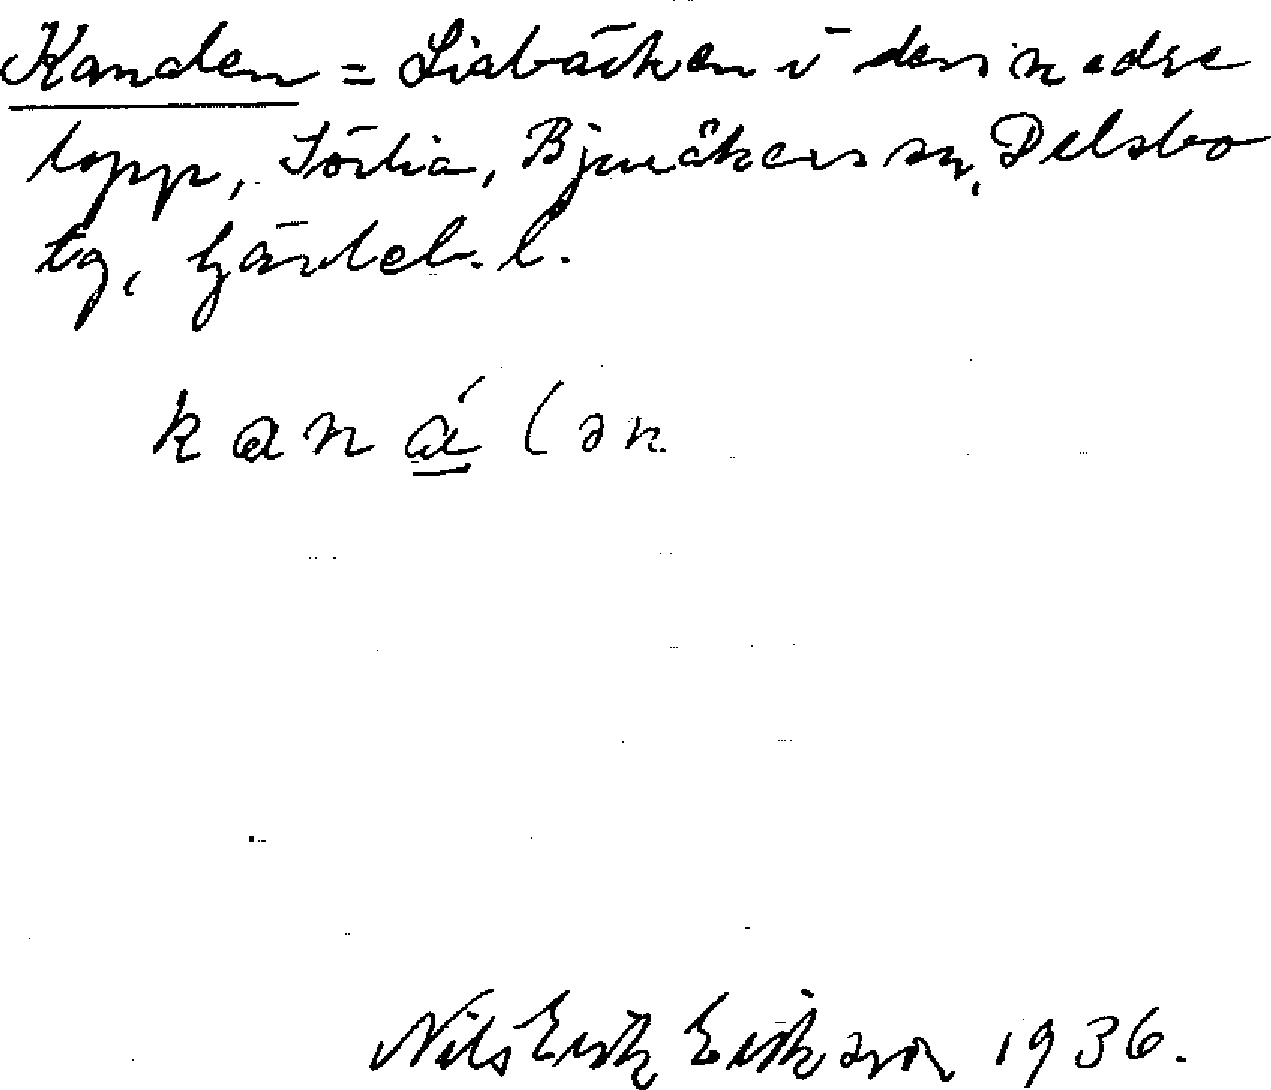 Kanalen = Liabäcken i dess nedre
lopp, Sörlia, Bjuråkers sn, Delsbo
tg, Gävleb. l.
kaná(ən
Nils Erik Eriksson 1936.